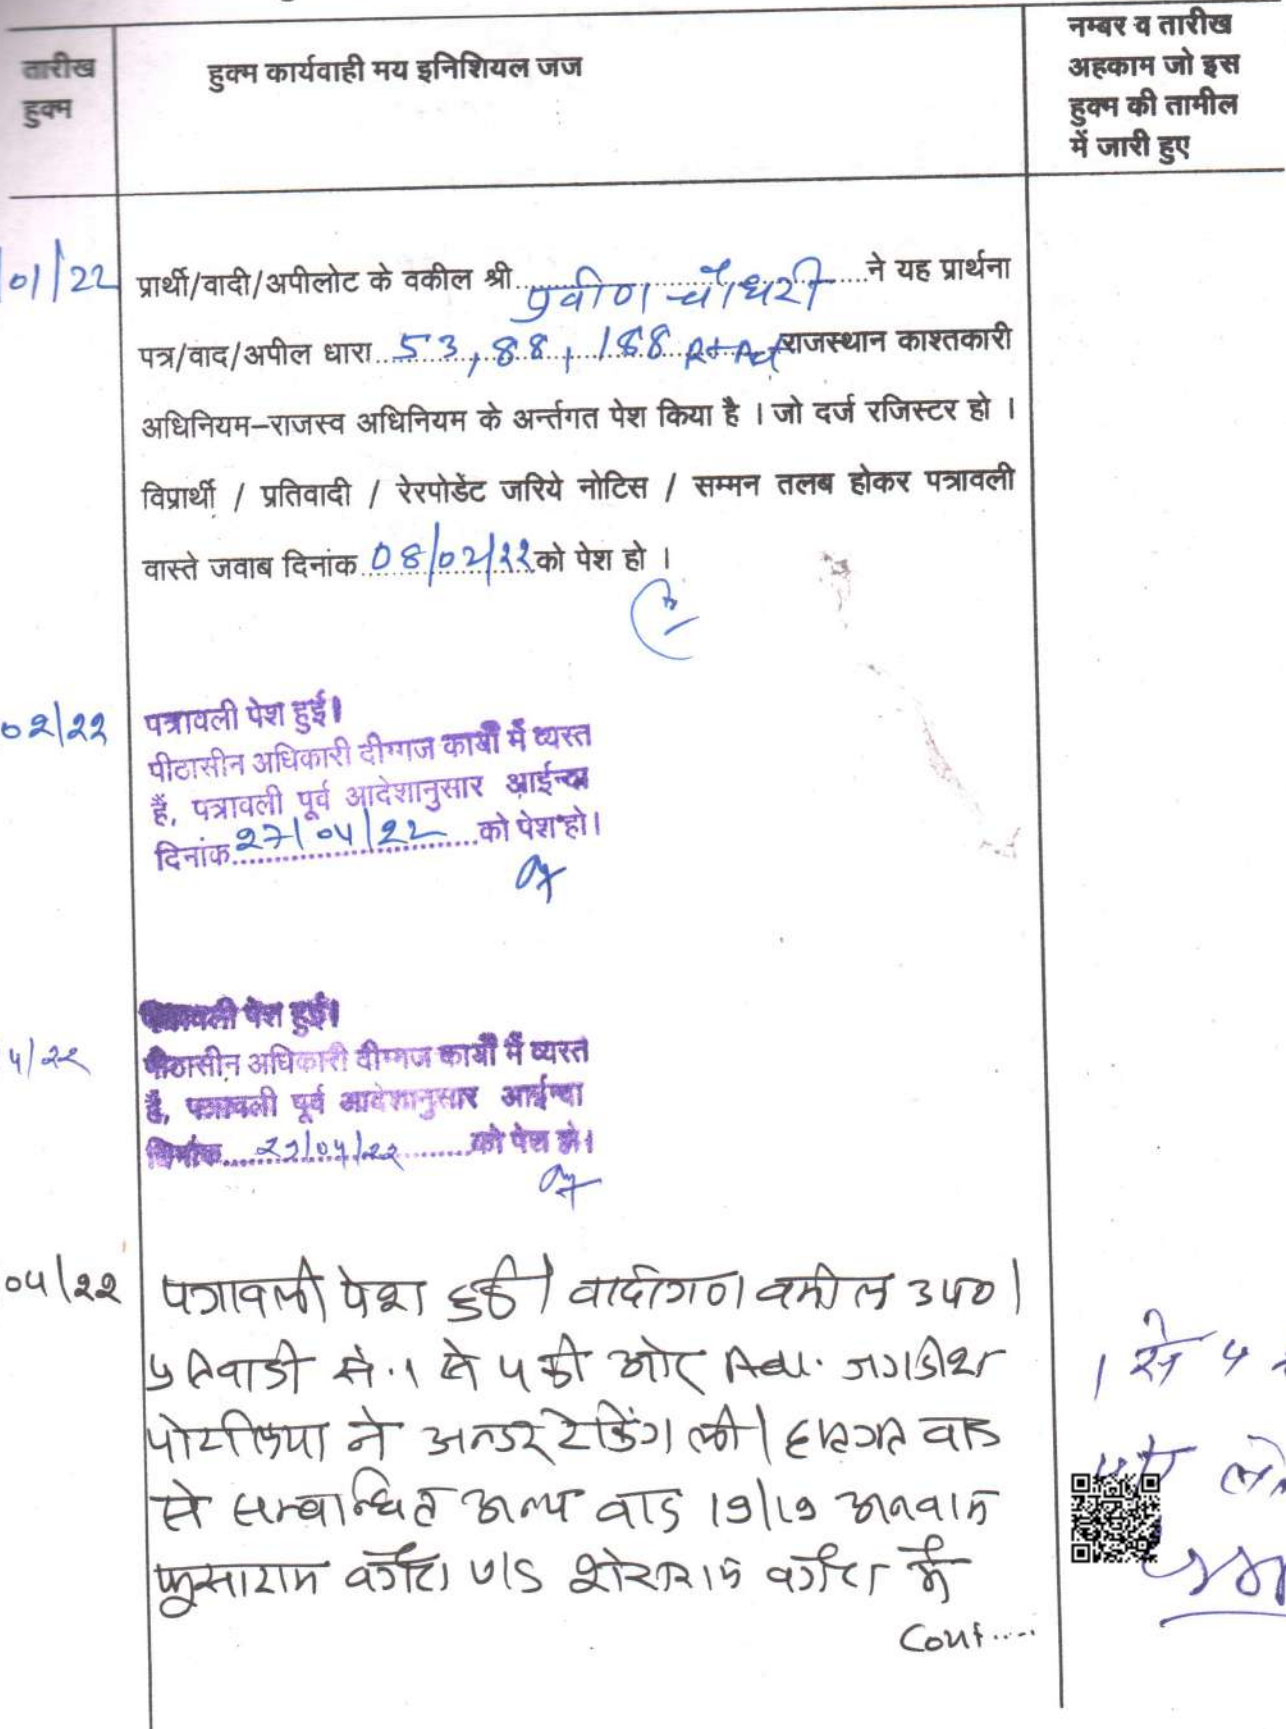 तारीख
हुक्म
हुक्म कार्यवाही मय इनिशियल जज
नम्बर व तारीख
अहकाम जो इस
हुक्म की तामील
में जारी हुए
/01/22
प्रार्थी/वादी/अपीलोट के वकील श्री प्रवीण चौधरी ने यह प्रार्थना
पत्र/वाद/अपील धारा 53, 88, 188 Rt Act राजस्थान काश्तकारी
अधिनियम–राजस्व अधिनियम के अर्न्तगत पेश किया है । जो दर्ज रजिस्टर हो ।
विप्रार्थी / प्रतिवादी / रेरपोडेंट जरिये नोटिस / सम्मन तलब होकर पत्रावली
वास्ते जवाब दिनांक 08/02/22 को पेश हो ।
02/22
पत्रावली पेश हुई।
पीठासीन अधिकारी दीगगज कार्यो में व्यस्त
हैं, पत्रावली पूर्व आदेशानुसार आईन्दा
दिनांक 27/04/22 को पेश हो।
4/22
पत्रावली पेश हुई।
पीठासीन अधिकारी दीगगज कार्यो में व्यस्त
हैं, पत्रावली पूर्व आदेशानुसार आईन्दा
दिनांक /04/22 को पेश हो।
04/22
पत्रावली पेश हुई। वादीगण वकील उप०।
प्रतिवादी सं. 1 से 4 की ओर Adv. जगदीश
ने अन्डरटेकिंग ली। हस्तगत वाद
से सम्बन्धित अन्य वाद 19/19 अनवान
फुसाराम वगैरा V/S वगैरा में
Cont....
1 से 4